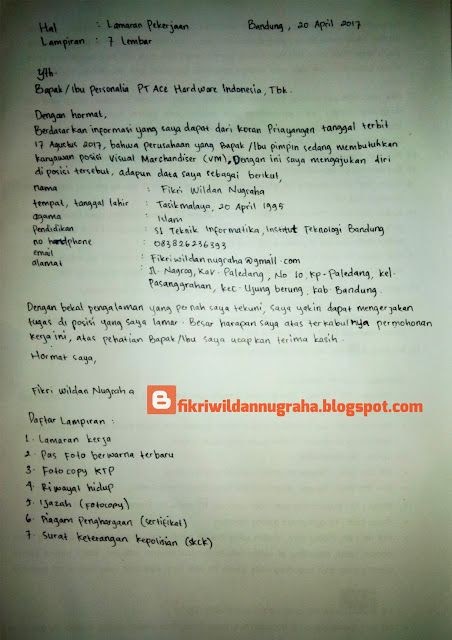 Hal : Lamaran Pekerjaan Bandung, 20 April 2017
Lampiran : 7 Lembar
Yth.
Bapak/Ibu Personalia PT Ace Hardware Indonesia, Tbk.
Dengan hormat,
Berdasarkan informasi yang saya dapat dari Koran Priayangan tanggal terbit
17 Agustus 2017, bahwa perusahaan yang Bapak/Ibu pimpin sedang membutuhkan
Karyawan posisi Visual Marchandiser (VM), Dengan ini saya mengajukan diri
di posisi tersebut, adapun data saya sebagai berikut,
nama : Fikri Wildan Nugraha
tempat, tanggal lahir : Tasikmalaya, 20 April 1995
agama : Islam
Pendidikan : S1 Teknik Informatika, Institut Teknologi Bandung
no handphone : 083826236393
email : Fikriwildannugraha@gmail.com
alamat : Jl. Nagrog, Kav. Paledang, No 10, Kp. Paledang, kel.
Pasanggrahan, kec. Ujung berung, kab. Bandung.
Dengan bekal pengalaman yang pernah saya tekuni, saya yakin dapat mengerjakan
tugas di posisi yang saya lamar. Besar harapan saya atas terkabulnya permohonan
kerja ini, atas pehatian Bapak/Ibu saya ucapkan terima kasih.
Hormat saya,
Fikri Wildan Nugraha
fikriwildannugraha.blogspot.com
Daftar Lampiran :
1. Lamaran kerja
2. Pas Foto berwarna terbaru
3. Foto copy KTP
4. Riwayat hidup
5. Ijazah (fotocopy)
6. Piagam Penghargaan (sertifikat)
7. Surat keterangan kepolisian (SKCK)